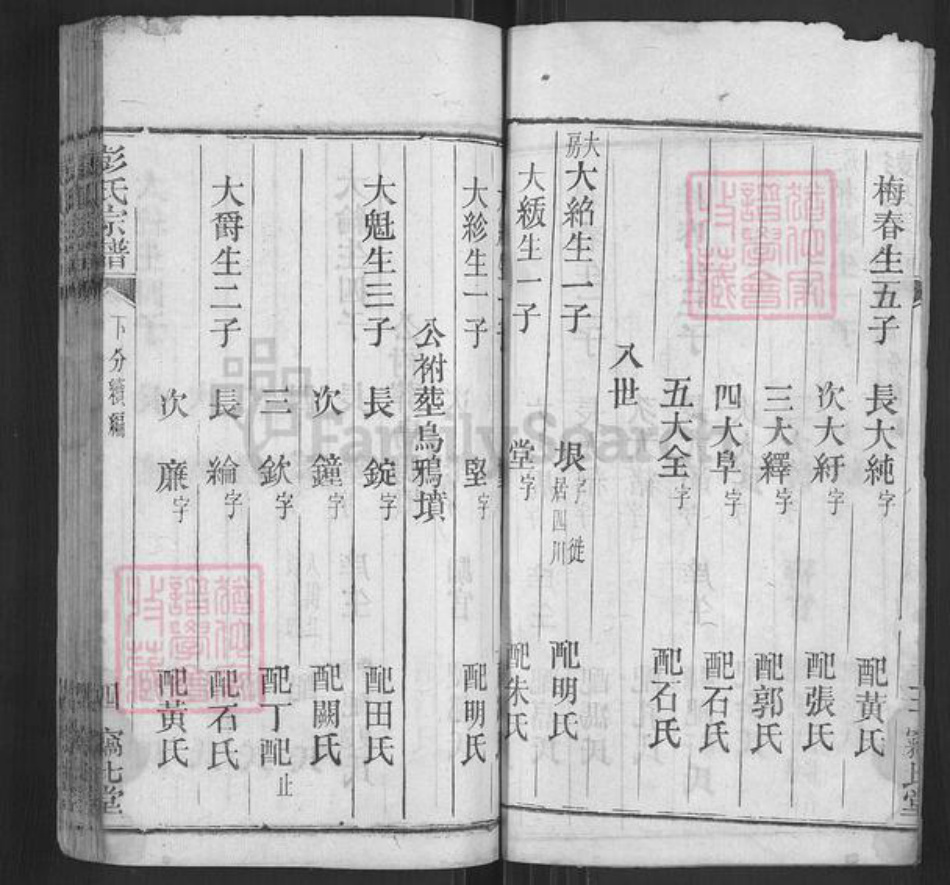 梅春生五子 長大純字 配黃氏
次大紆字 配張氏
三大繹字 配郭氏
四大阜字 配石氏
五大全字 配石氏
八世
大房大絡生一子 垠字徙居四川 配明氏
大緩生一子 堂字 配朱氏
大紾生一子 堅字 配明氏
公祔塟烏鴉墳
大魁生三子 長錠字 配田氏
次鐘字 配闕氏
三欽字 配丁配止
大爵生二子 長綸字 配石氏
次廉字 配黃氏
彭氏宗譜 下分續編 四
FamilySearch